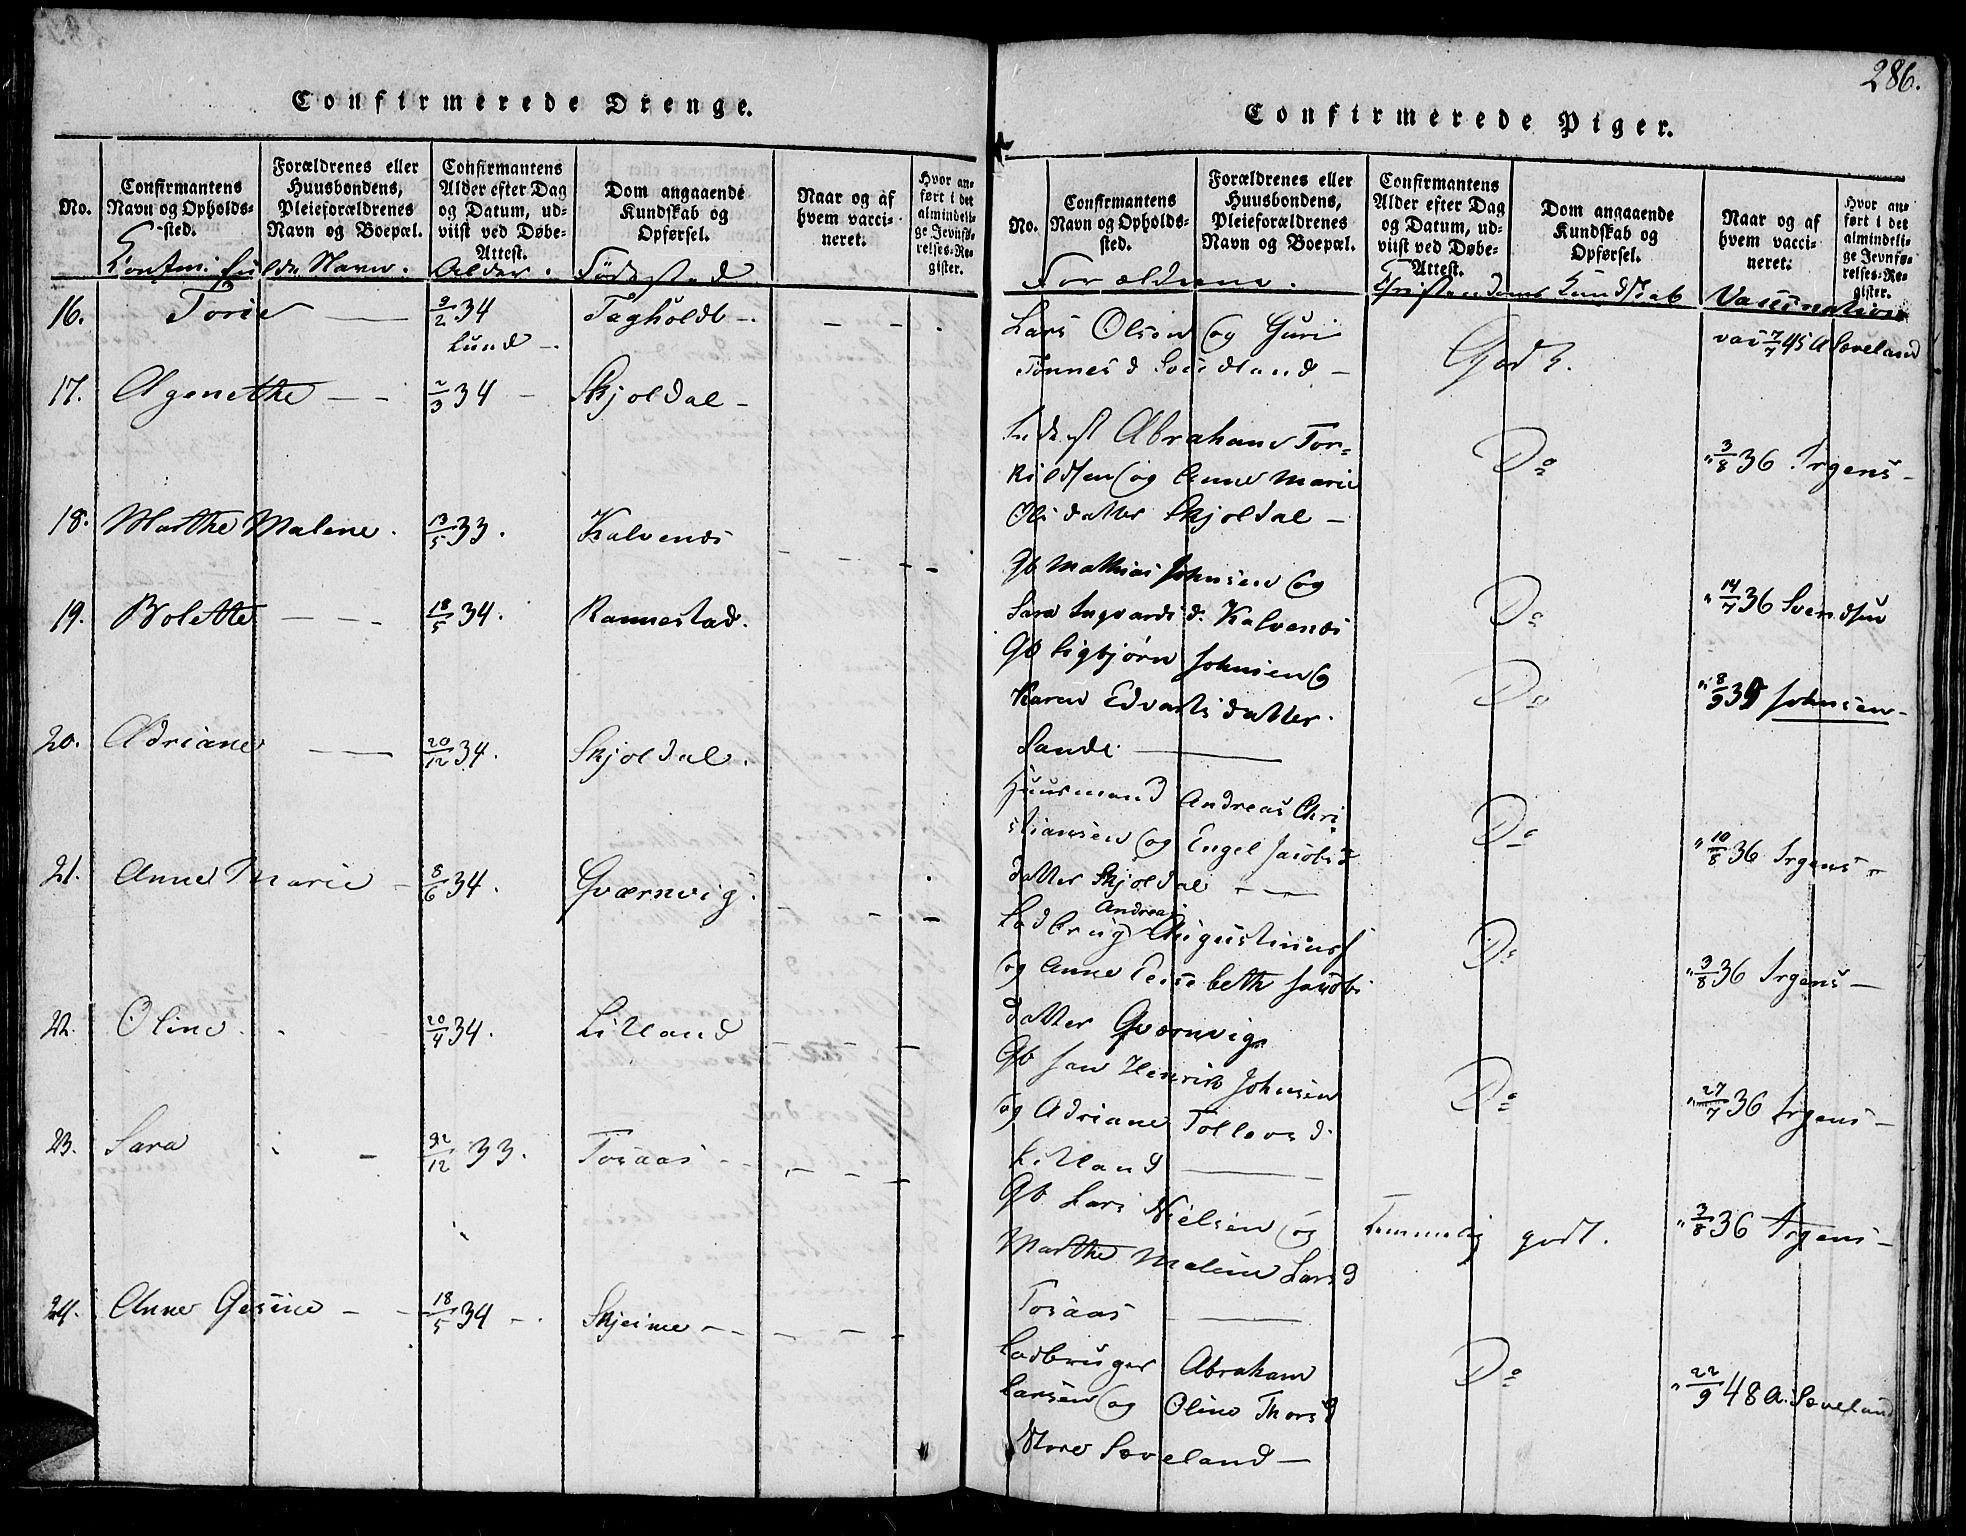 286.
Confirmerede Drenge.
No.
Confirmantens Navn og Opholds-sted.
Forældrenes eller Huusbondens, Pleieforældrenes Navn og Boepæl.
Confirmantens Alder efter Dag og Datum, ud-viist ved Døbe-Attest.
Dom angaaende Kundskab og Opførsel.
Naar og af hvem vacci-neret.
Hvor an-ført i det almindeli-ge Jevnfø-relses-Re-gister.
Confirmerede Piger.
No.
Confirmantens Navn og Opholds-sted.
Forældrenes eller Huusbondens, Pleieforældrenes Navn og Boepæl.
Confirmantens Alder efter Dag og Datum, ud-viist ved Døbe-Attest.
Dom angaaende Kundskab og Opførsel.
Naar og af hvem vacci-neret.
Hvor an-ført i det almindeli-ge Jevnfø-relses-Re-gister.
Confirm. fulde Navn. Alder. Fødested
Forældrene. Christendoms Kundskab Vaccination
16. Torie 9/2 34 Tagholdt
Lund
Lars Olsen og Guri
Tønnesd
Godt.
vac 7/7 45 A Sæveland
17. Agenethe 2/3 34 Skjoldal
Abraham Tor=
kildsen og Anne Marie
Olsdatter Skjoldal
Do
" 3/8 36 Irgens
18. Marthe Malene. 13/5 33. Kalvenæs
Gb Mathias Johnsen og
Sara Ingvardsd. Kalvenæs
Do
" 14/7 36 Svendsen
19. Bolette 18/5 34. Rannestad.
Gb Sigbjørn Johnsen og
Karen Edvartsdatter.
Sande.
Do
" 8/9 35 Johnsen
20. Adriane 20/12 34. Skjoldal.
Huusmand Andreas Chri
stiansen og Engel Jacobs
datter Skjoldal
Do
" 10/8 36 Irgens
21. Anne Marie 8/6 34. Qværnvig.
Andreas
Ladbrug Augustinus
og Anne Lisebeth Jacobs
datter Qværnvig
Do
" 3/8 36 Irgens
22. Oline. 20/4 34. Litland
Gb Jan Henrik Johnsen
og Adriane Tollevsd.
Litland
Do
" 27/7 36 Irgens
23. Sara 22/12 33. Tosaas
Gb Lars Nielsen og
Marthe Maline Larsd
Tosaas
Temmelig godt.
" 3/8 36 Irgens
24. Anne Gesine 18/5 34 Skjeime
Ladbruger Abraham
Larsen og Oline Thorsd
Store Sæveland
Do
" 22/9 48 A. Sæveland